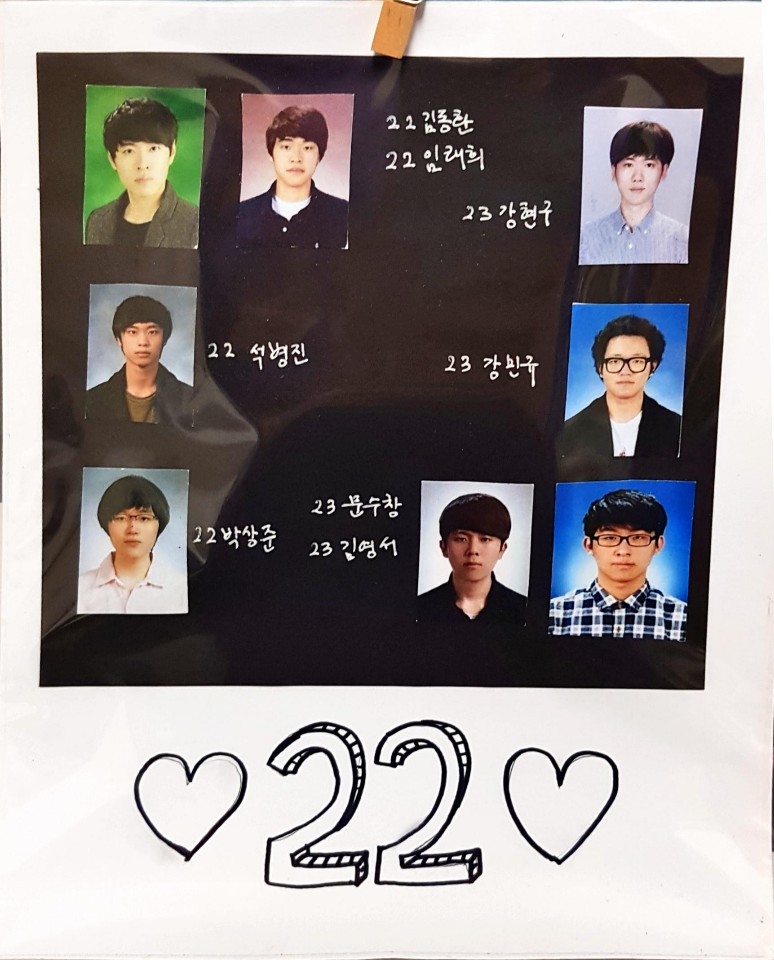 22 김동환
22 임래희
23 강현구
22 석병진
23 강민규
22 박상준
23 문수창
23 김영서
22